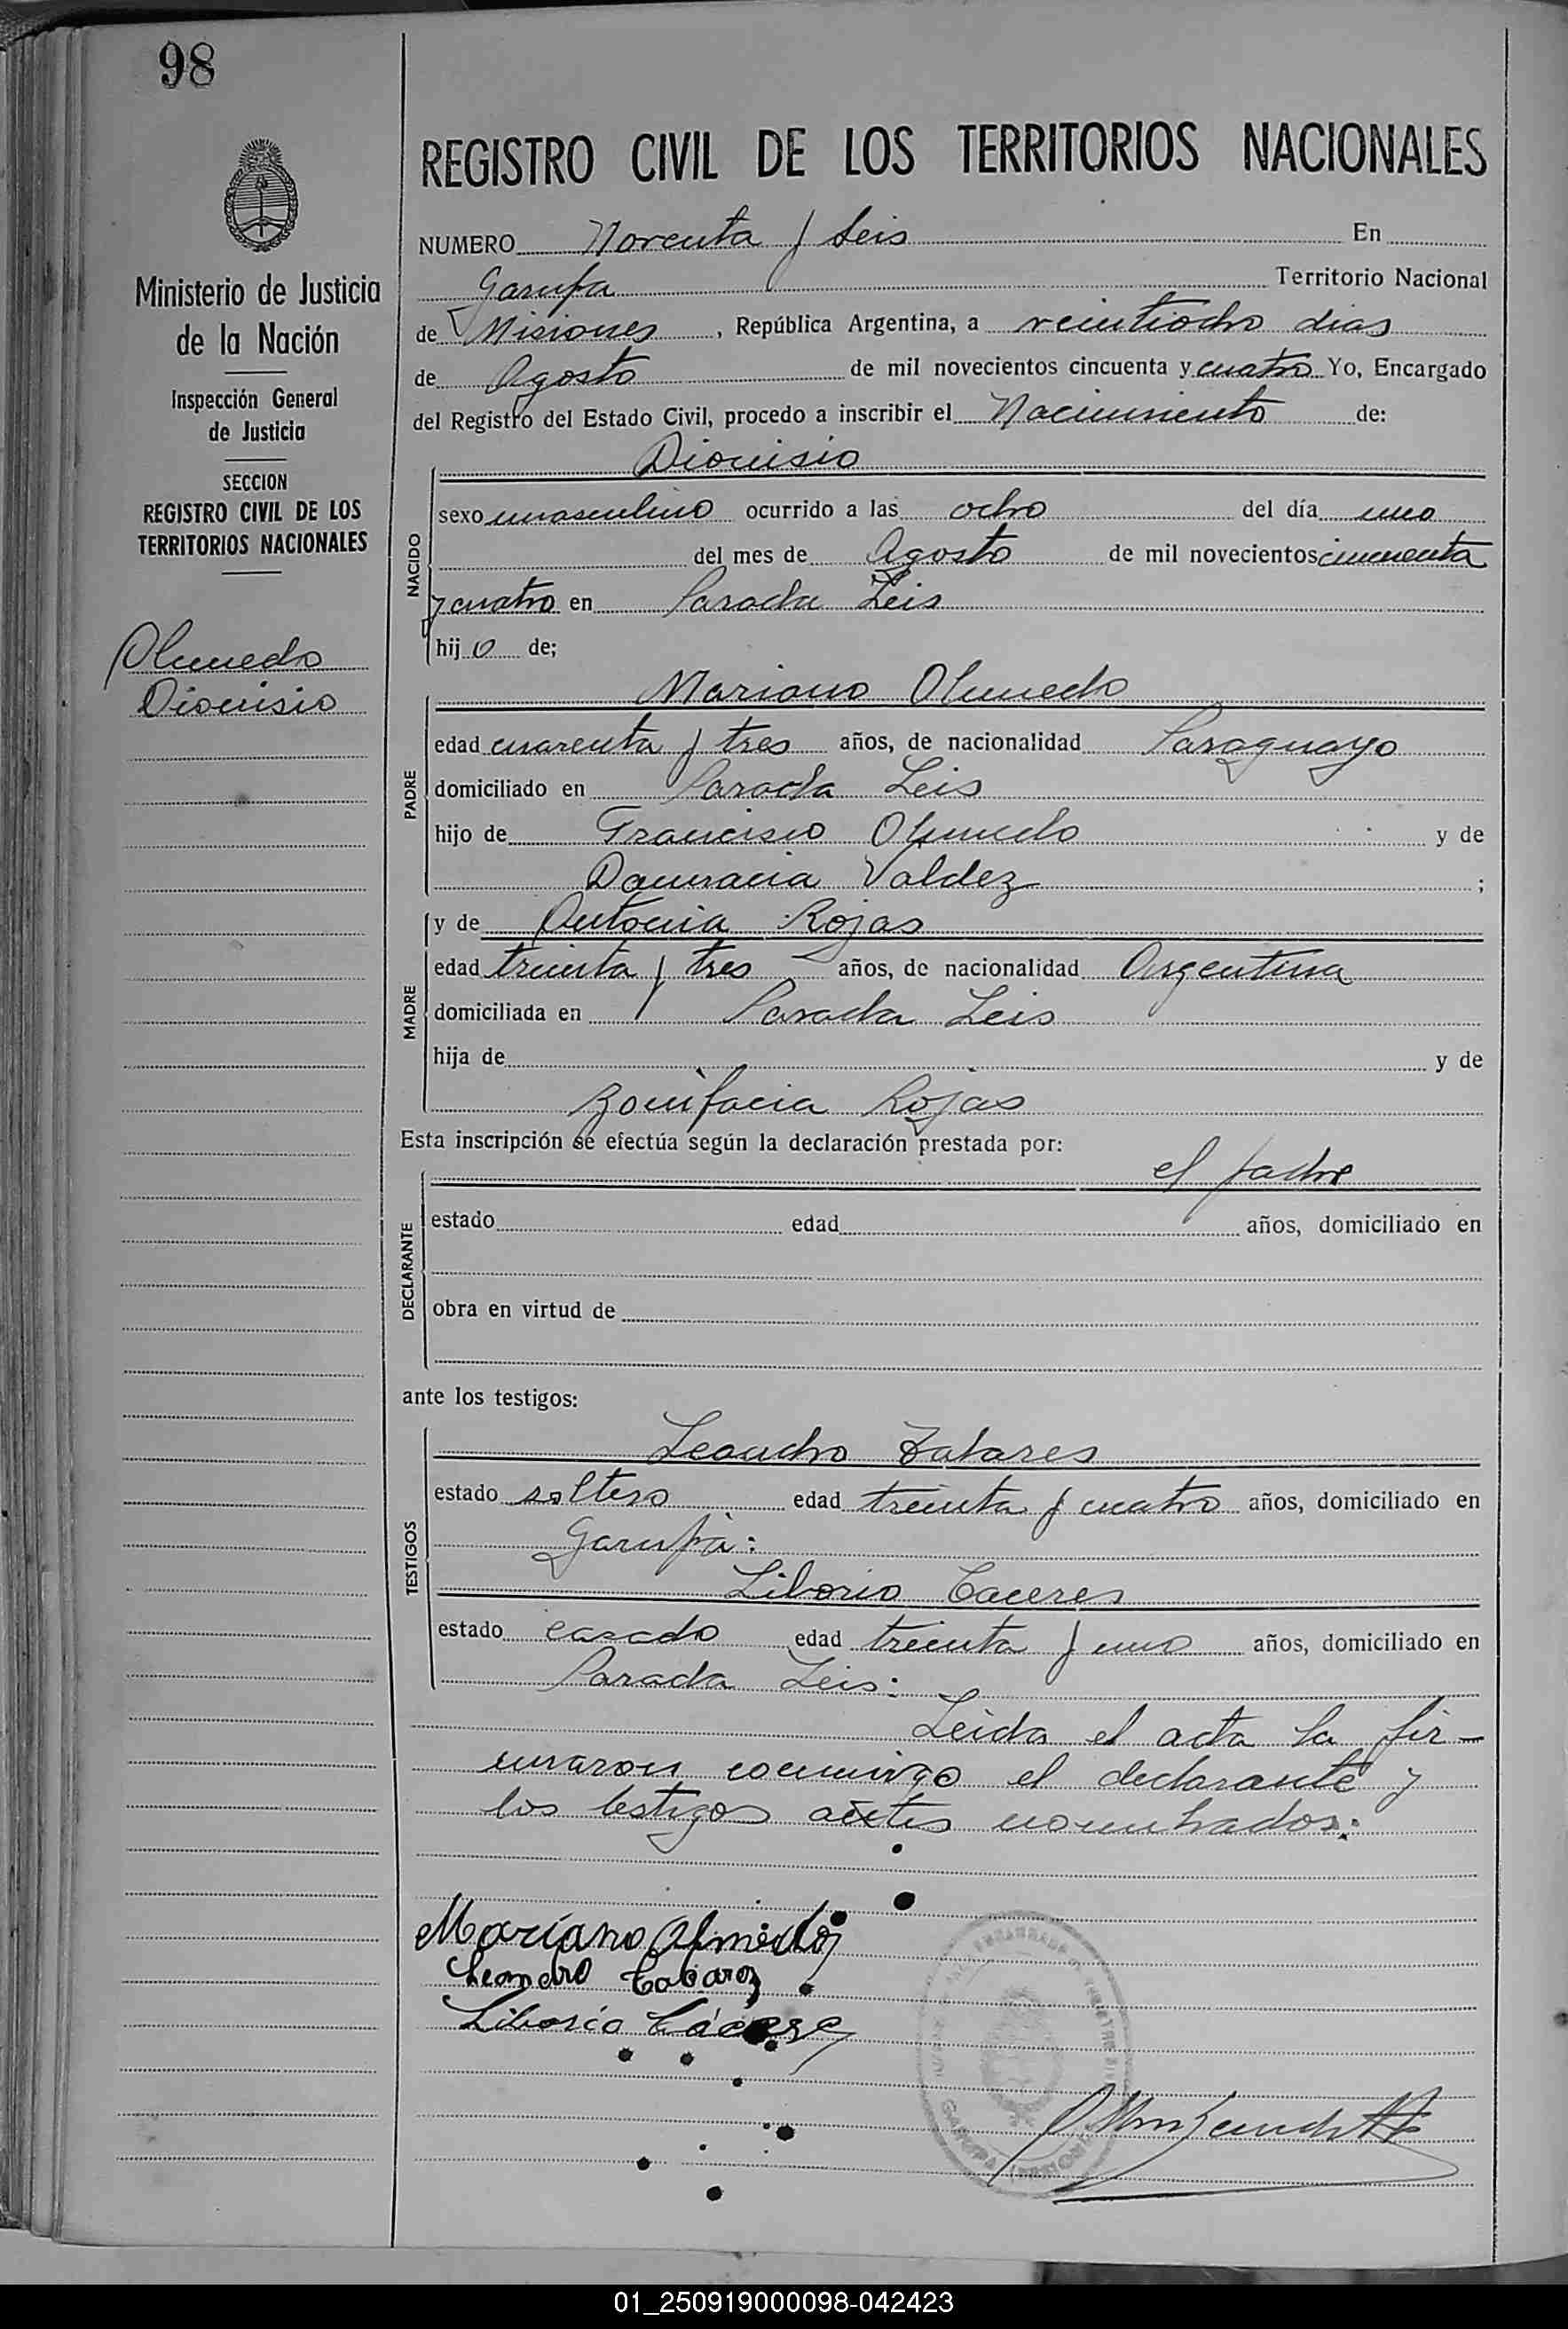 98
REGISTRO CIVIL DE LOS TERRITORIOS NACIONALES
Ministerio de Justicia
de la Nación
Inspección General
de Justicia
SECCION
REGISTRO CIVIL DE LOS
TERRITORIOS NACIONALES
Olmedo
Dionisio
NUMERO Noventa y Seis En
Garupa Territorio Nacional
de Misiones, República Argentina, a veintiocho dias
de Agosto de mil novecientos cincuenta y cuatro Yo, Encargado
del Registro del Estado Civil, procedo a inscribir el Nacimiento de:
NACIDO
Dionisio
sexo masculino ocurrido a las ocho del día uno
del mes de Agosto de mil novecientos cincuenta
y cuatro en Parada Leis
hijo de;
PADRE
Mariano Olmedo
edad cuarenta y tres años, de nacionalidad Paraguayo
domiciliado en Parada Leis
hijo de Francisco Olmedo y de
Damracia Valdez ;
MADRE
y de Antonia Rojas
edad treinta y tres años, de nacionalidad Argentina
domiciliada en Parada Leis
hija de y de
Bonifacia Rojas
Esta inscripción se efectúa según la declaración prestada por:
DECLARANTE
el padre
estado edad años, domiciliado en
obra en virtud de
ante los testigos:
TESTIGOS
Leandro Tabares
estado soltero edad treinta y cuatro años, domiciliado en
Garupa:
Liborio Caceres
estado casado edad treinta y uno años, domiciliado en
Parada Leis:
Leida el acta la fir-
maron conmigo el declarante y
los testigos antes nombrados:
Mariano Olmedo
Leandro Tabarez
Liborio Cáceres
GARUPA MISIONES
01_250919000098-042423